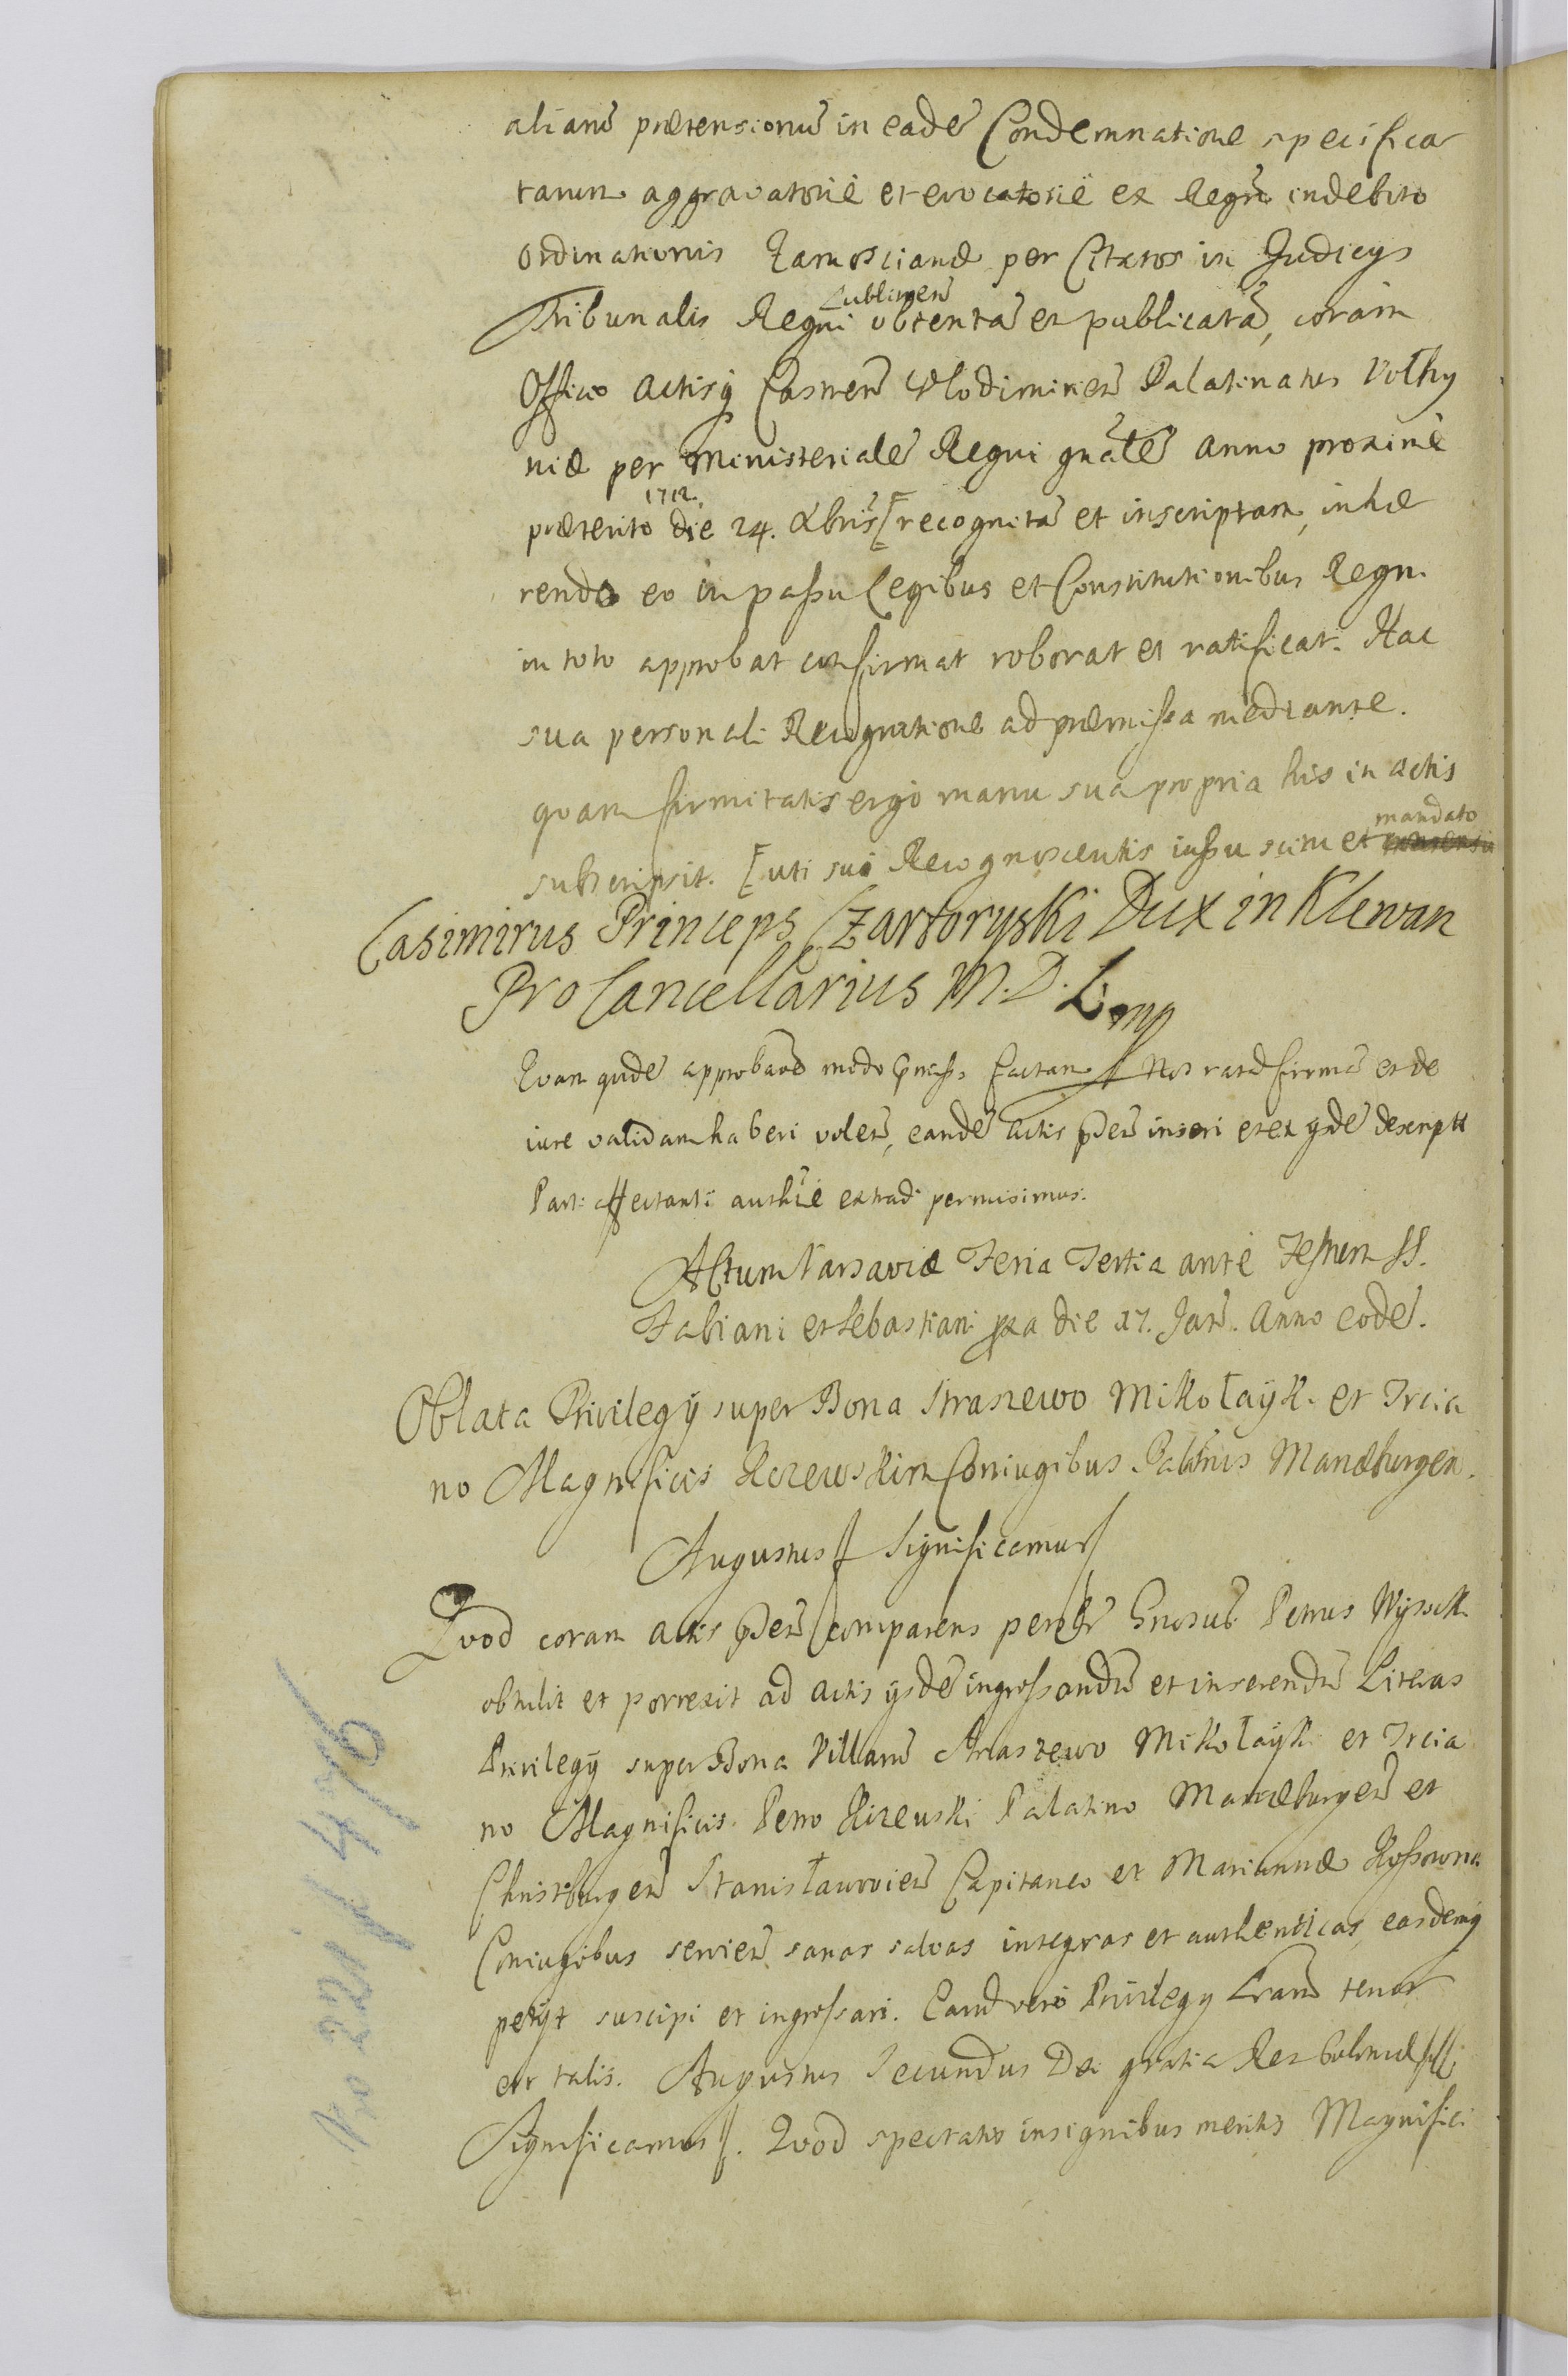 alianē prætensionū in eadē Condemnatione specifica
tarum aggravatoriè et evocatoriè ex Regrō indebito
Ordinationis Zamoscianæ per Citatos in Judicys
Tribunalis Regni Lublinen̄ obtentā et publicatā, coram
Officio Actisq Castren̄ Vlodimirien̄ Palatinatus Volhy
niæ per Ministerialē Regni gnālē Anno proximè
præterito 1712. die 24. Xbris [recognitā et inscriptam, inhæ
rendo eo in passu Legibus et Constitutionibus Regni
in toto approbat confirmat roborat et ratificat. Hac
sua personali Recognitione ad præmissa mediante.
quam firmitatis ergò manu sua propria his in actis
subscripsit. [uti sui Recognoscentis iussu scitu et mandato
Casimirus Princeps Czartoryski Dux in Klewan
ProCancellarius M.D.L. mp
Quam quidē approbaōē modo pmiss. factam // Nos ratā firmā et de
iure validam haberi volen̄, eandē Actis pn̄ten̄ inseri et ex ysdē descriptā
Parti affectanti authcè extradi permisimus.
Actum Varsaviæ Feria Tertia antè Festum SS.
Fabiani et Sebastiani pxa die 17. Jan̄. Anno eodē.
Oblata Privilegÿ super Bona Straszewo Mikołayk. et Trcia
no Magnificis Kczewskim Coniugibus Palatinis Marieburgen.
Augustus // Significamus //
Quod coram Actis pn̄ten̄ comparens personlr Gnosus Petrus Wysocki
obtulit et porrexit ad Actis ysdē ingrossandū et inserendū Literas
Privilegÿ super Bona Villarū Straszewo Mikołayk. et Trcia
no Magnificis Petro Kczewski Palatino Marieburgen̄ et
Christburgen̄ Stanisławovien̄ Capitaneo et Mariannæ Kossowna
Coniugibus servien̄ sanas salvas integras et authenticas, easdemq
petÿt suscipi et ingrossari. Earū verò Privilegy Lrarū tenor
est talis. Augustus Secundus Dei gratia Rex Poloniæ //
Significamus //. Quod spectatis insignibus meritis Magnifici
No 221 f 476